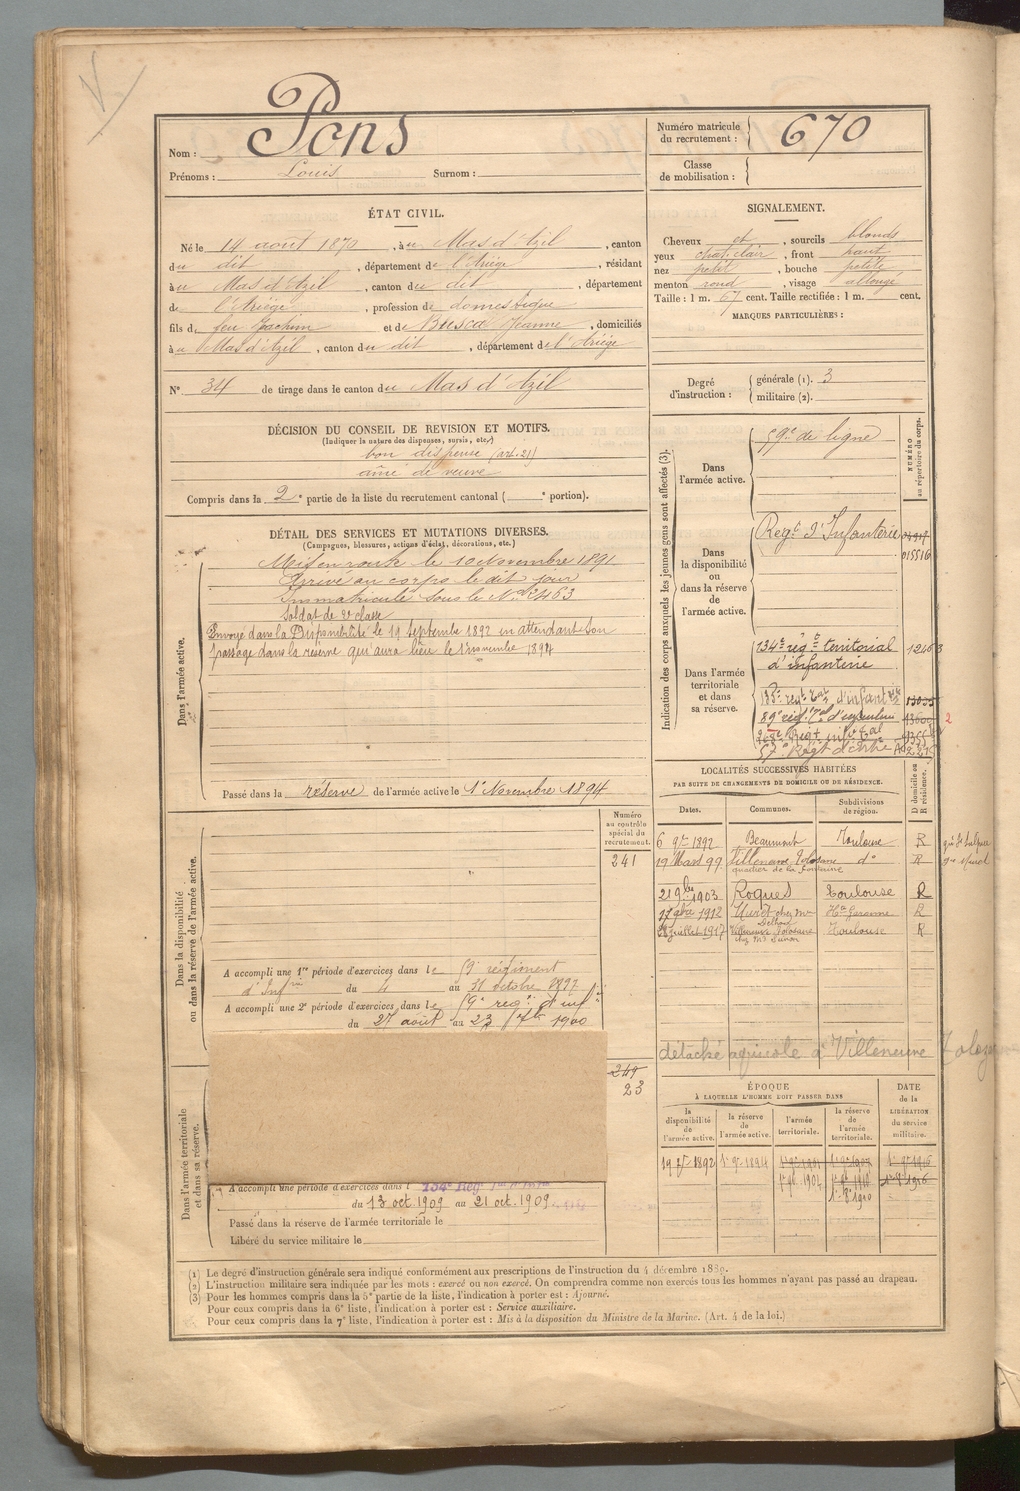 Pons
Nom :
Prénoms : Louis Surnom :
Numéro matricule
du recrutement : 670
Classe
de mobilisation :
ÉTAT CIVIL.
Né le 14 août 1870, à u Mas d'Azil, canton
du dit, département de l'Ariège, résidant
à u Mas d'Azil, canton du dit, département
de l'Ariège, profession de domestique
fils de feu Jachim et de Busca Jeanne, domiciliés
à u Mas d'Azil, canton du dit, département de l'Ariège
N° 34 de tirage dans le canton du Mas d'Azil
SIGNALEMENT.
Cheveux et, sourcils blonds
yeux chat. clair, front haut
nez petit, bouche petite
menton rond, visage allongé
Taille : 1 m. 67 cent. Taille rectifiée : 1 m. cent.
MARQUES PARTICULIÈRES :
Degré
d'instruction :
générale (1). 3
militaire (2).
DÉCISION DU CONSEIL DE REVISION ET MOTIFS.
(Indiquer la nature des dispenses, sursis, etc.)
bon dispensé (art. 21)
aîné de veuve
Compris dans la 2e partie de la liste du recrutement cantonal ( e portion).
DÉTAIL DES SERVICES ET MUTATIONS DIVERSES.
(Campagnes, blessures, actions d'éclat, décorations, etc.)
Dans l'armée active.
Mis en route le 10 Novembre 1891
Arrivé au corps le dit jour
Immatriculé sous le N° 2463
Soldat de 2e classe
Envoyé dans la Disponibilité le 19 Septembre 1892 en attendant son
passage dans la réserve qui aura lieu le 1er novembre 1894
Passé dans la réserve de l'armée active le 1er Novembre 1894
Indication des corps auxquels les jeunes gens sont affectés (3).
NUMÉRO
au répertoire du corps.
Dans
l'armée active.
59e de ligne
Dans
la disponibilité
ou
dans la réserve
de
l'armée active.
Regt d'Infanterie
015516
Dans l'armée
territoriale
et dans
sa réserve.
134e régt territorial
d'infanterie
135e regt
13035
2
LOCALITÉS SUCCESSIVES HABITÉES
PAR SUITE DE CHANGEMENTS DE DOMICILE OU DE RÉSIDENCE.
Dates. Communes. Subdivisions
de région. D domicile ou
R résidence.
6 9bre 1892 Beaumont Toulouse R
19 Mars 97 Villeneuve Tolosane d° R
quartier de la Fontaine
21 9bre 1903 Roques Toulouse R
1912 Muret chez Mr Hte Garonne R
28 Juillet 1917 Villeneuve Tolosane Toulouse R
détaché agricole à Villeneuve
Dans la disponibilité
ou dans la réserve de l'armée active.
Numéro
au contrôle
spécial du
recrutement.
241
A accompli une 1re période d'exercices dans le 59e régiment
d'Infrie du 4 au 31 octobre 1897
A accompli une 2e période d'exercices dans le 59e regt d'inf
du 27 août au 23 7bre 1900
249
23
Dans l'armée territoriale
et dans sa réserve.
A accompli une période d'exercices dans l 134e Régt
du 13 oct. 1909 au 21 oct. 1909
Passé dans la réserve de l'armée territoriale le
Libéré du service militaire le
ÉPOQUE
À LAQUELLE L'HOMME DOIT PASSER DANS
la
disponibilité
de
l'armée active.
la réserve
de
l'armée active.
l'armée
territoriale.
la réserve
de
l'armée
territoriale.
DATE
de la
LIBÉRATION
du service
militaire.
19 7bre 1892 1er 9bre 1894
(1) Le degré d'instruction générale sera indiqué conformément aux prescriptions de l'instruction du 4 décembre 1889.
(2) L'instruction militaire sera indiquée par les mots : exercé ou non exercé. On comprendra comme non exercés tous les hommes n'ayant pas passé au drapeau.
(3) Pour les hommes compris dans la 5e partie de la liste, l'indication à porter est : Ajourné.
Pour ceux compris dans la 6e liste, l'indication à porter est : Service auxiliaire.
Pour ceux compris dans la 7e liste, l'indication à porter est : Mis à la disposition du Ministre de la Marine. (Art. 4 de la loi.)